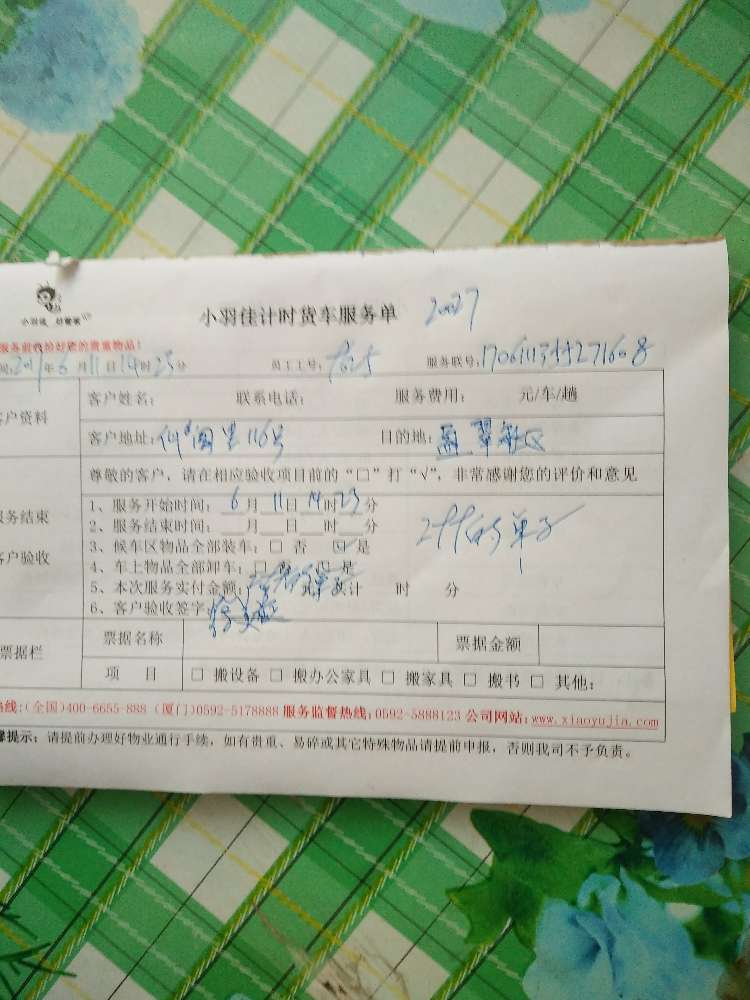 小羽佳计时货车服务单
小羽佳 好管家
服务前收拾好您的贵重物品!
年6月11日14时23分 员工工号: 服务联号:
客户资料
客户姓名: 联系电话: 服务费用: 元/车/趟
客户地址: 116号 目的地:
尊敬的客户,请在相应验收项目前的“□”打“√”,非常感谢您的评价和意见
服务结束
客户验收
1、服务开始时间:6月11日14时23分
2、服务结束时间:__月__日__时__分
3、候车区物品全部装车:□ 否 ☑ 是
4、车上物品全部卸车:□ 否 ☑ 是
5、本次服务实付金额: 元 共计 时 分
6、客户验收签字
的单子
票据栏
票据名称 票据金额
项 目 □ 搬设备 □ 搬办公家具 □ 搬家具 □ 搬书 □ 其他:
热线:(全国)400-6655-888 (厦门)0592-5178888 服务监督热线:0592-5888123 公司网站:www.xiaoyujia.com
提示:请提前办理好物业通行手续,如有贵重、易碎或其它特殊物品请提前申报,否则我司不予负责。